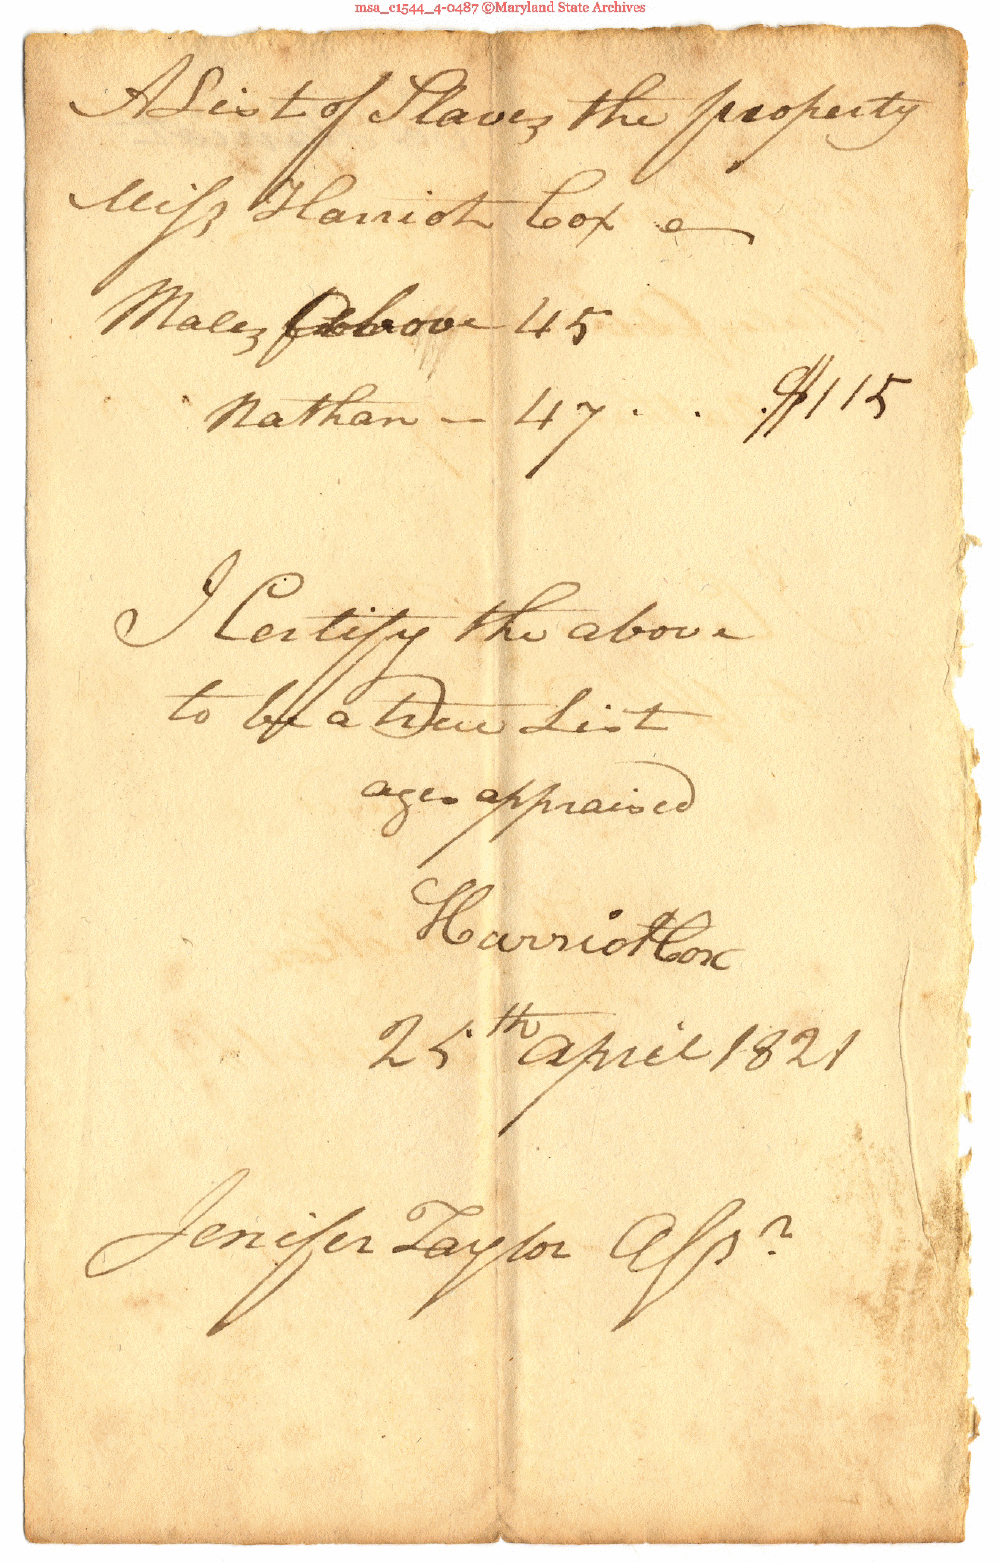 msa_c1544_4-0487 ©Maryland State Archives
A List of Slaves the property
Miss Harriot Cox
Males above 45
Nathan — 47 . . . $115
I Certify the above
to be a true List
ages appraised
Harriot Cox
25th april 1821
Jenifer Taylor Assr